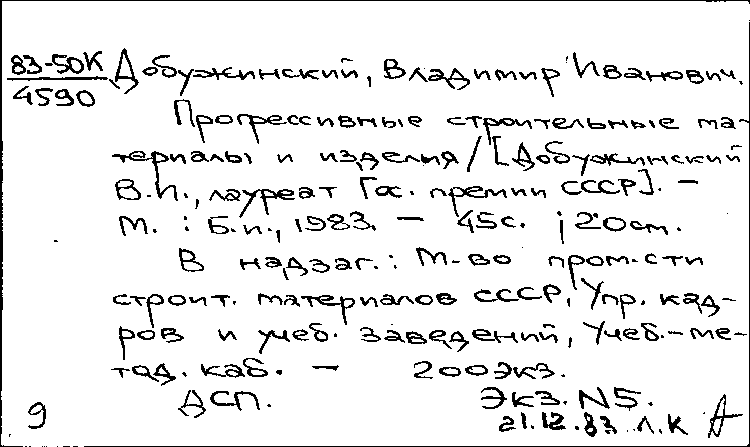 83-50К Добужинский, Владимир Иванович.
4590
Прогрессивные строительные ма-
териалы и изделия / [Добужинский
В.И., лауреат Гос. премии СССР]. –
М. : Б.и., 1983. – 45с. ; 20см.
В надзаг.: М-во пром-сти
строит. материалов СССР, Упр. кад-
ров и учеб. заведений, Учеб.-ме-
тод. каб. – 200экз.
ДСП. Экз. N5.
9 21.12.83 Л.К А